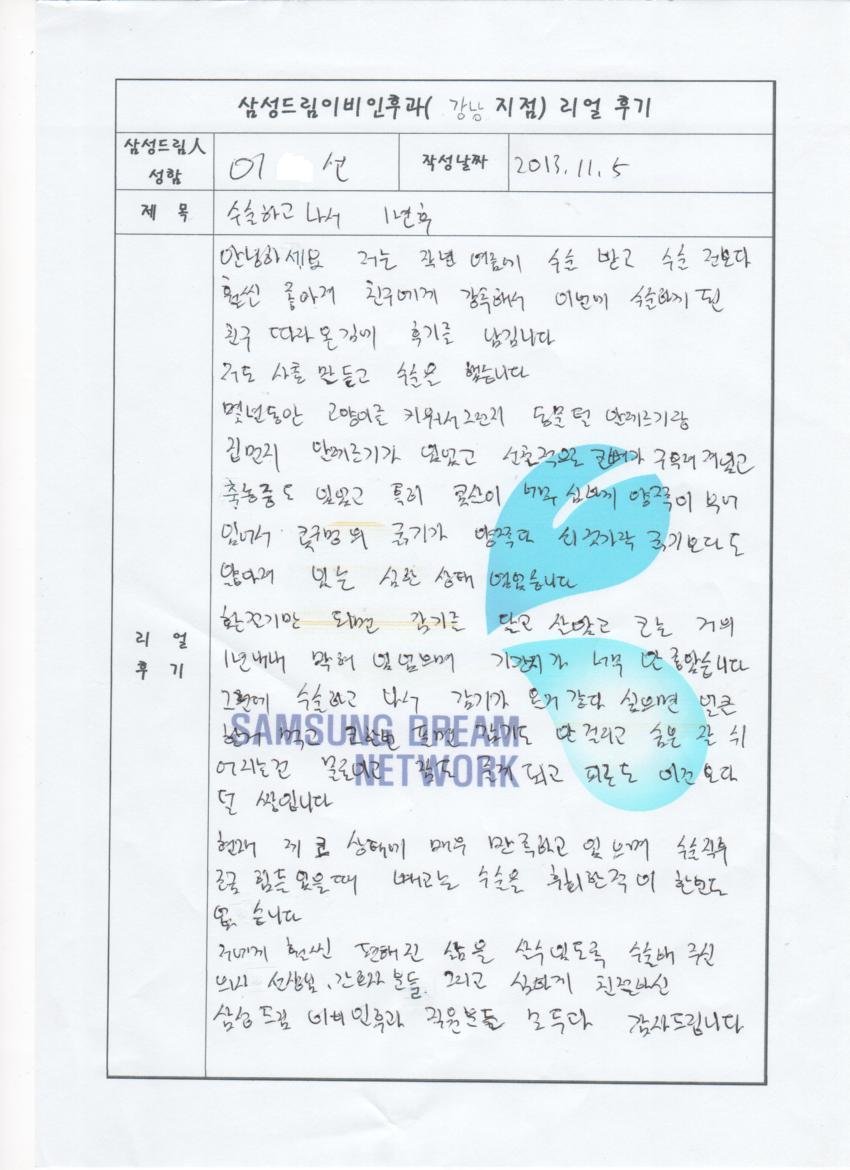 삼성드림이비인후과( 강남 지점) 리얼 후기
삼성드림人 성함
이 선
작성날짜
2013. 11. 5
제 목
수술하고 나서 1년후
리 얼 후 기
안녕하세요 저는 작년 여름에 수술 받고 수술 전보다
훨씬 좋아져 친구에게 강추해서 이번에 수술하게 된
친구 따라온김에 후기를 남깁니다
저도 사촌 말듣고 수술을 했습니다
몇년동안 고양이를 키워서그런지 동물털 알레르기랑
집먼지 알레르기가 있었고 선천적으로 코뼈가 구부러져있고
축농증도 있었고 특히 콧살이 너무 심하게 양쪽이 부어
있어서 콧구멍의 굵기가 양쪽다 쇠젓가락 굵기보다도
얇아져 있는 심한 상태 였었습니다
환절기만 되면 감기를 달고 살았고 코는 거의
1년내내 막혀 있었으며 기관지가 너무 안 좋았습니다
그런데 수술하고 나서 감기가 온거 같다 싶으면 얼큰
한거 먹고 코한번 풀면 감기도 안 걸리고 숨을 잘 쉬
어지는건 물론이고 잠도 잘자 되고 피로도 이전보다
덜 쌓입니다
현재 제 코 상태에 매우 만족하고 있으며 수술직후
조금 힘들었을때 빼고는 수술을 후회한적이 한번도
없습니다
저에게 훨씬 편해진 삶을 살수있도록 수술해 주신
의사 선생님, 간호사분들, 그리고 심하게 친절하신
삼성드림 이비인후과 직원분들 모두다 감사드립니다
SAMSUNG DREAM
NETWORK